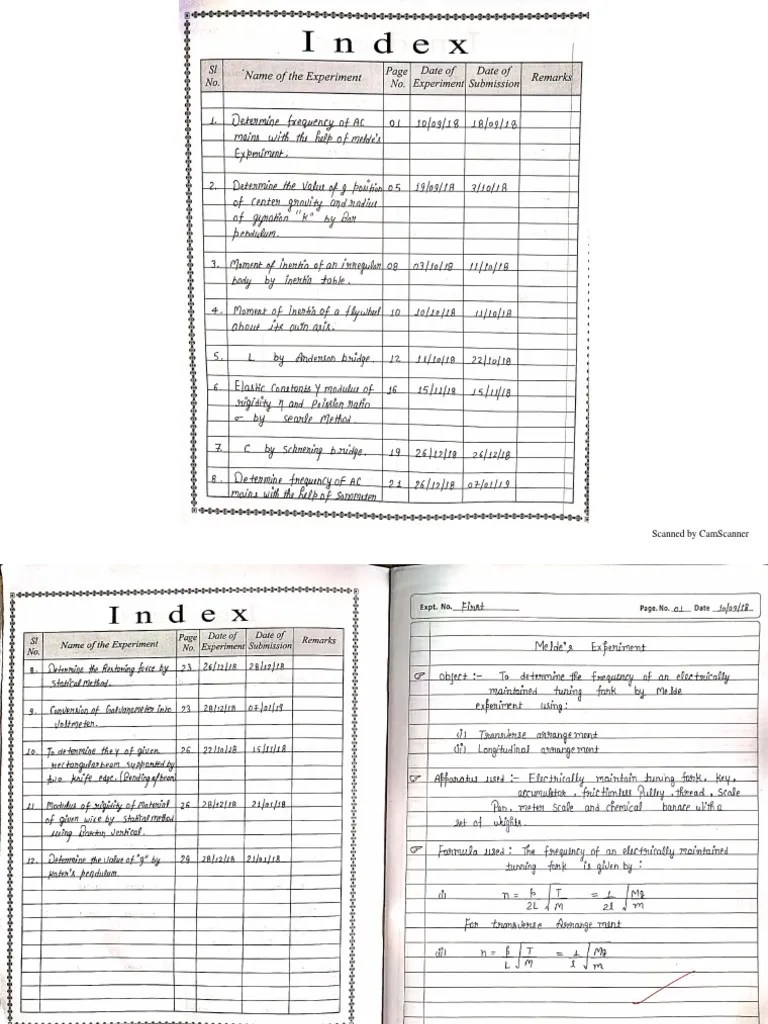 Index
Sl No. Name of the Experiment Page No. Date of Experiment Date of Submission Remarks
1. Determine frequency of AC 01 10/09/18 18/09/18
mains with the help of melde's
Experiment.
2. Determine the value of g position 05 19/09/18 3/10/18
of center gravity and radius
of gyration "K" by Bar
pendulum.
3. Moment of inertia of an irregular 08 03/10/18 11/10/18
body by inertia table.
4. Moment of inertia of a flywheel 10 10/10/18 11/10/18
about its own axis.
5. L by Anderson bridge. 12 11/10/18 22/10/18
6 Elastic Constants Y modulus of 16 15/11/18 15/11/18
rigidity η and Poission ratio
σ by searle Method.
7. C by Schnering bridge. 19 26/12/18 26/12/18
8. Determine frequency of AC 21 26/12/18 07/01/19
mains with the help of
Scanned by CamScanner
Index
Sl No. Name of the Experiment Page No. Date of Experiment Date of Submission Remarks
8. Determine the Restoring force by 23 26/12/18 28/12/18
statical Method.
9. Conversion of Galvanometer into 23 28/12/18 07/01/19
voltmeter.
10. To determine the y of given 26 22/10/18 15/11/18
rectangular beam supported by
two knife edge. (Bending of beam)
11 Modulus of rigidity of Material 26 28/12/18 21/01/18
of given wire by statical method
using Barton vertical.
12. Determine the value of "g" by 29 28/12/18 21/01/18
Kater's pendulum.
Expt. No. First Page. No. 01 Date 10/09/18
Melde's Experiment
Object :- To determine the frequency of an electrically
maintained tuning fork by Melde
experiment using:
(i) Transverse arrangement
(ii) Longitudinal arrangement
Apparatus used :- Electrically maintain tuning fork, Key,
accumulator, frictionless Pulley, thread, Scale
Pan, meter Scale and chemical banace with a
set of wights.
Formula used : The frequency of an electrically maintained
tunning fork is given by :
(i) n = p/2L √T/M = 1/2l √Mg/m
For transverse Arrangement
(ii) n = p/L √T/M = 1/l √Mg/m